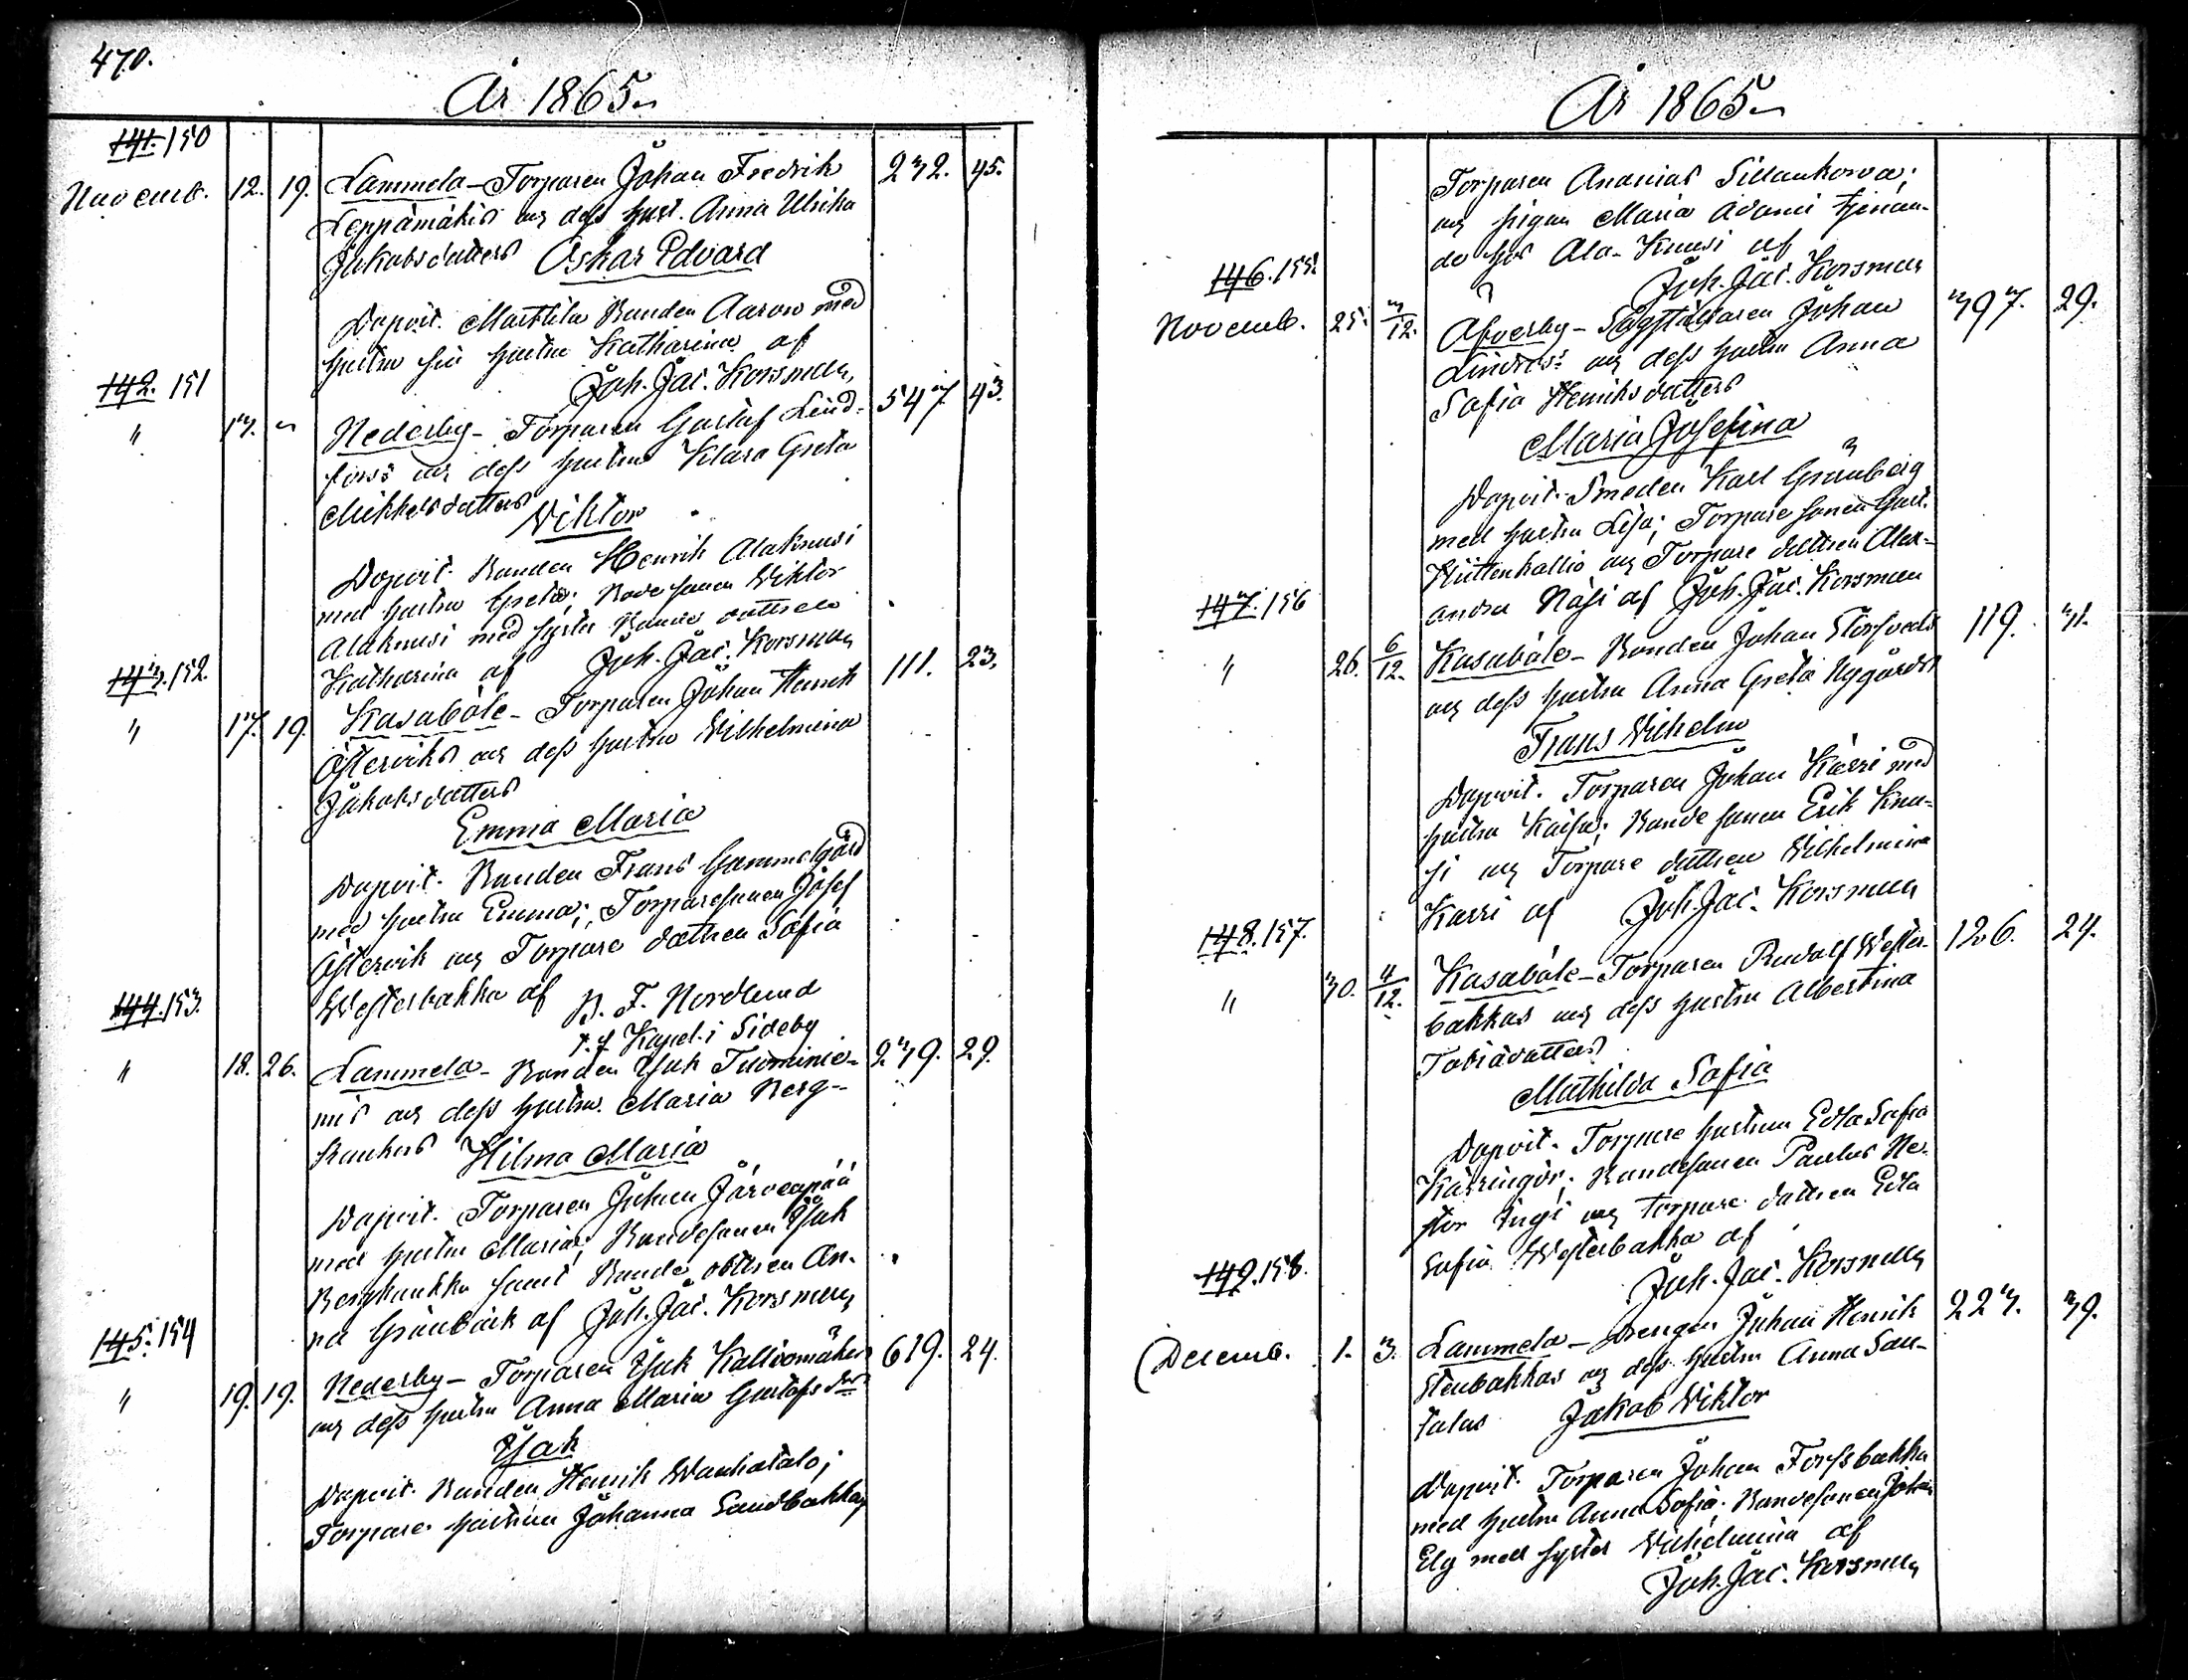 470.
År 1865
141. 150
Novemb. 12. 19. Lammela - Torparen Johan Fredrik 232. 45.
Leppämäkis och dess hust. Anna Ulrika
Jakobsdotters Oskar Edvard
Dopvit. Bonden Aaron med
hustru Katharina af
Joh. Jac. Korsman
142. 151
" 17. " Nederby - Torparen Gustaf Lind- 547. 43.
fors's och dess hustru Klara Greta
Mikkelsdotters Viktor
Dopvit. Bonden Henrik Alaknusi
med hustru Greta; Bondesonen Viktor
Alaknusi med syster Bonde dottren
Katharina af Joh. Jac. Korsman
143. 152.
" 17. 19. Kasaböle - Torparen Johan Henrik 111. 23.
Österviks och dess hustru Wilhelmina
Jakobsdotters
Emma Maria
Dopvit. Bonden Frans Gammelgård
med hustru Emma; Torparesonen Josef
Östervik och Torpare dottren Sofia
Westerbakka af P. F. Nordlund
t. f. Kapel. i Sideby
144. 153.
" 18. 26. Lammela - Bonden Isak Tuominie- 239. 29.
mis och dess hustru Maria Berg-
kaukas Hilma Maria
Dopvit. Torparen Johan Järvenpää
med hustru Maria; Bondesonen Isak
samt Bonde dottren An-
na Grönback af Joh. Jac. Korsman
145. 154
" 19. 19. Nederby - Torparen Isak Kalliomäkis 619. 24.
och dess hustru Anna Maria Gustafsdrs
Isak
Dopvit. Bonden Henrik Wanhatalo;
Torpare hustrun Johanna Sandbakka,
År 1865
Torparen Ananias Sillankorva;
och pigan Maria Adami tjenan-
de hos Ala-Knusi af
Joh. Jac. Korsman
146. 155.
Novemb. 25. 3/12. Åfverby - Johan 397. 29.
Lindros's och dess hustru Anna
Sofia Henriksdotters
Maria Josefina
Dopvit. Smeden Karl Grönberg
med hustru Lisa; Torpare sonen Gust.
Hüttenkallio och Torpare dottren Alex-
andra Näsi af Joh. Jac. Korsman
147. 156
" 26. 6/12. Kasaböle - Bonden Johan Storsveds 119. 31.
och dess hustru Anna Greta Nygårds
Frans Wilhelm
Dopvit. Torparen Johan Karri med
hustru Kaisa; Bonde sonen Erik Knu-
si och Torpare dottren Wilhelmina
Karri af Joh. Jac. Korsman
148. 157.
" 30. 4/12. Kasaböle - Torparen Rudolf Wester- 126. 24.
bakkas och dess hustru Albertina
Tobiædotters
Mathilda Sofia
Dopvit. Torpare hustrun Edla Sofia
Bondesonen Paulus Ne-
stor och torpare dottren Edla
Sofia Westerbakka af
Joh. Jac. Korsman
149. 158.
Decemb. 1. 3. Lammela - Drengen Johan Henrik 223. 39.
Stenbakkas och dess hustru Anna San-
talas Jakob Viktor
Dopvit. Torparen Johan Forssbakka
med hustru Anna Sofia; Bondesonen Johan
Elg med syster Wilhelmina af
Joh. Jac. Korsman